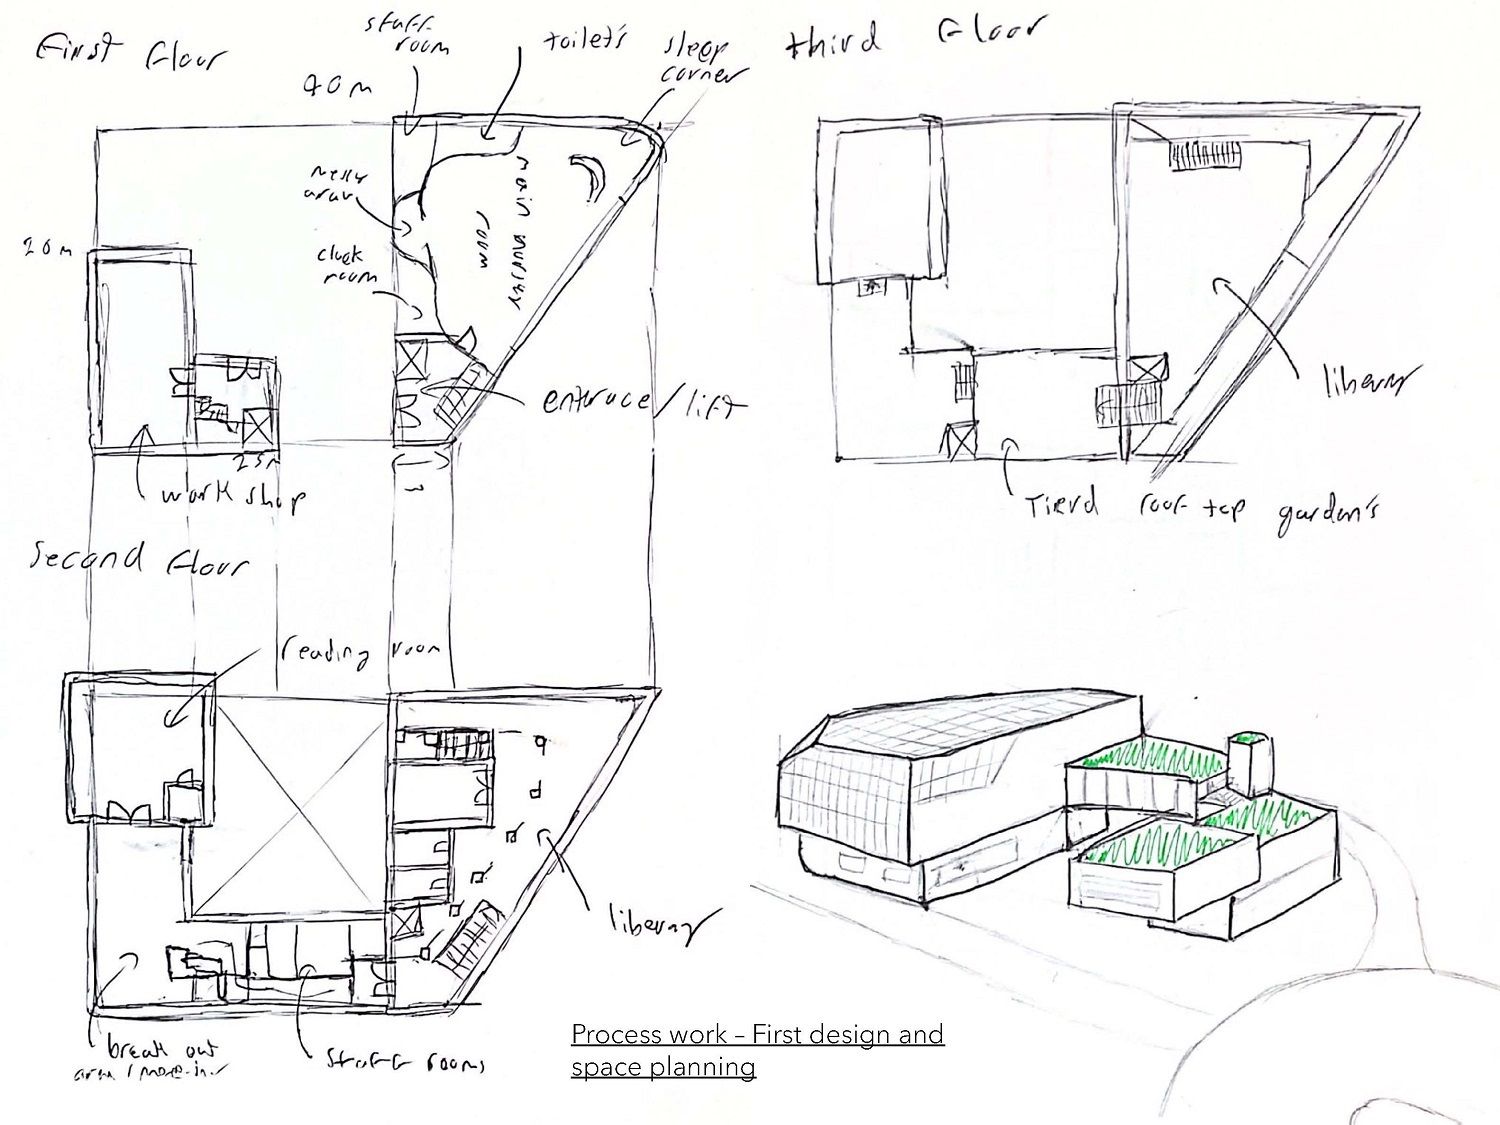 First floor
staff
room
toilet's
sleep
corner
third floor
40m
messy
area
main nursery
room
cloak
room
20m
entrace/lift
25m
work shop
liberary
Tierd roof top garden's
Second floor
reading room
liberary
break out
area /
staff rooms
Process work – First design and
space planning